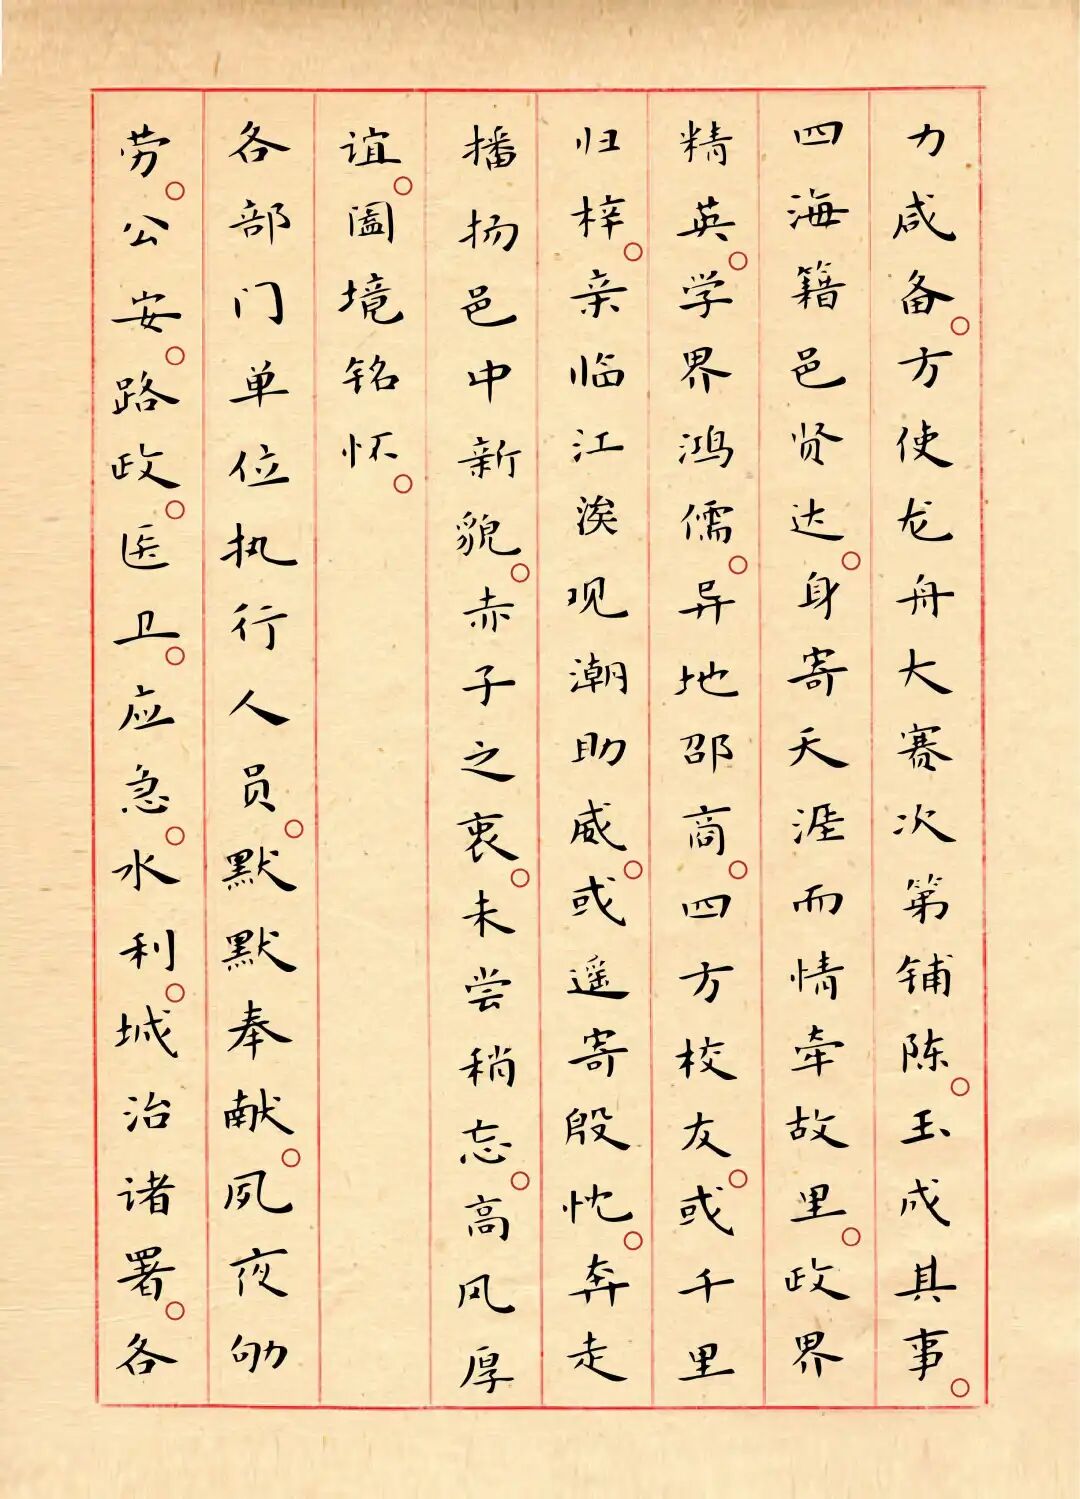 力咸备。方使龙舟大赛次第铺陈。玉成其事。
四海籍邑贤达。身寄天涯而情牵故里。政界
精英。学界鸿儒。异地邵商。四方校友。或千里
归梓。亲临江涘观潮助威。或遥寄殷忱。奔走
播扬邑中新貌。赤子之衷。未尝稍忘。高风厚
谊。阖境铭怀。
各部门单位执行人员。默默奉献。夙夜劬
劳。公安。路政。医卫。应急。水利。城治诸署。各